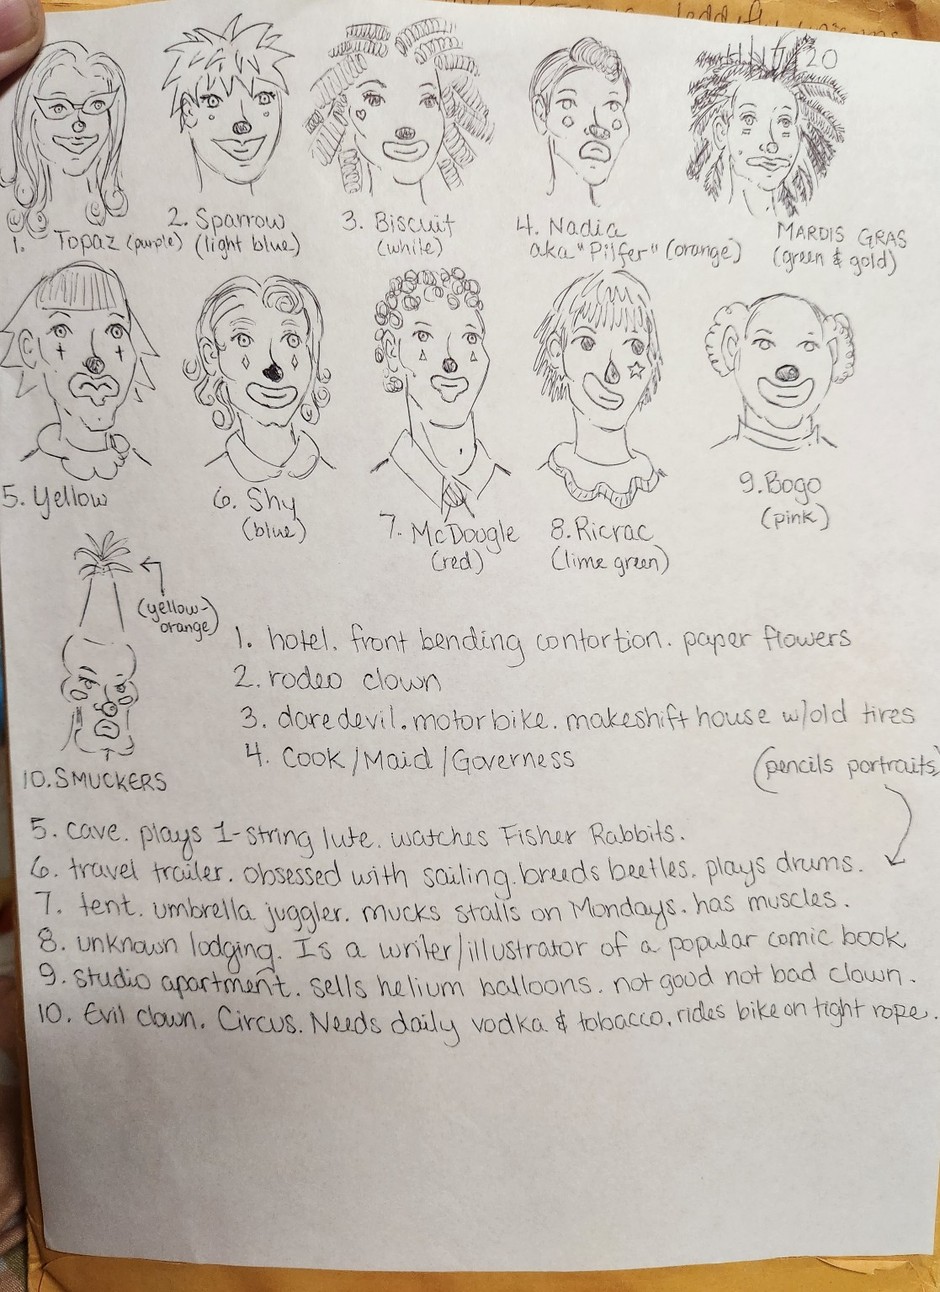 20
1. Topaz (purple)
2. Sparrow
(light blue)
3. Biscuit
(white)
4. Nadia
aka "Pilfer" (orange)
MARDIS GRAS
(green & gold)
5. Yellow
6. Shy
(blue)
7. McDoogle
(red)
8. Ricrac
(lime green)
9. Bogo
(pink)
(yellow-
orange)
10. SMUCKERS
1. hotel. front bending contortion. paper flowers
2. rodeo clown
3. daredevil. motorbike. makeshift house w/old tires
4. Cook/Maid/Governess
(pencils portraits)
5. cave. plays 1-string lute. watches Fisher Rabbits.
6. travel trailer. obsessed with sailing. breeds beetles. plays drums.
7. tent. umbrella juggler. mucks stalls on Mondays. has muscles.
8. unknown lodging. Is a writer/illustrator of a popular comic book
9. studio apartment. sells helium balloons. not good not bad clown.
10. Evil clown. Circus. Needs daily vodka & tobacco. rides bike on tight rope.